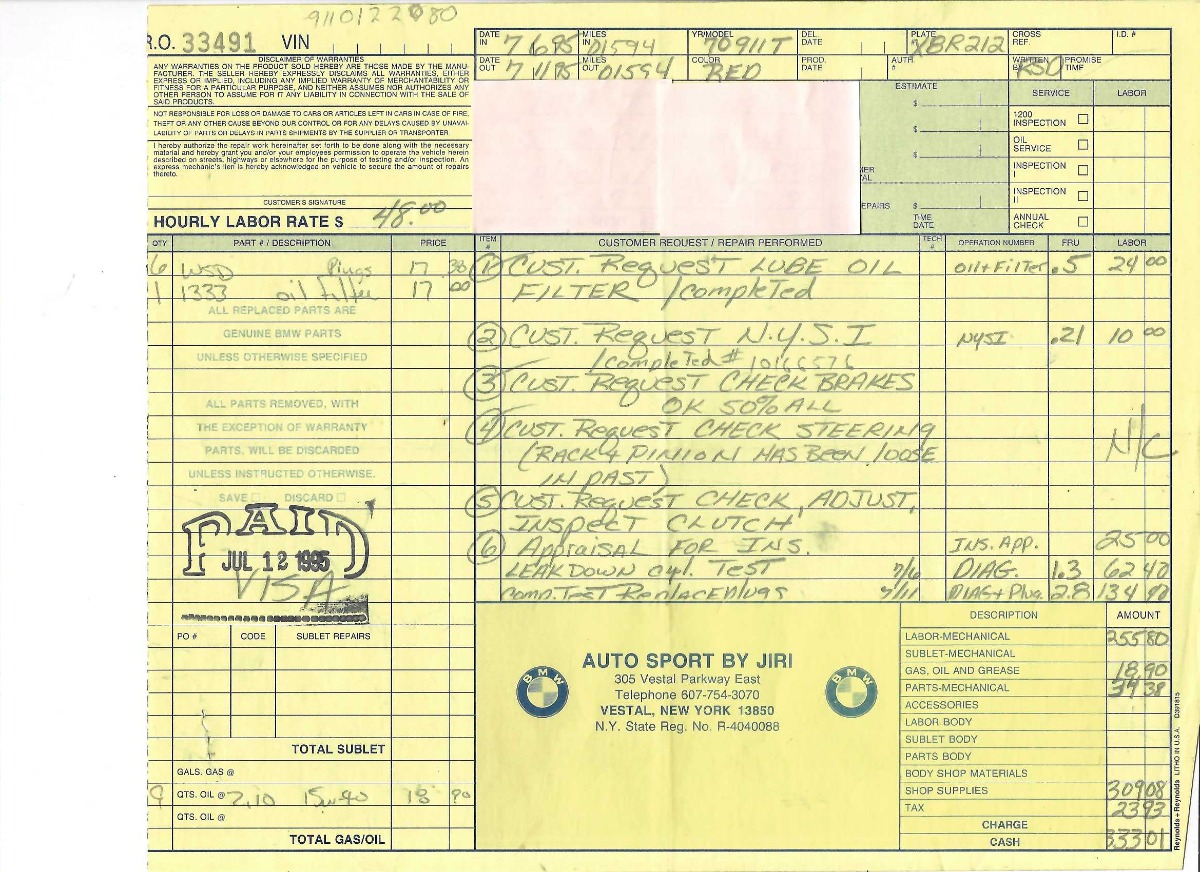 9110122080
R.O. 33491 VIN
DATE IN 7 6 95 MILES IN 01594 YR/MODEL 70 911T DEL. DATE PLATE XBR212 CROSS REF. I.D. #
DATE OUT 7 11 95 MILES OUT 01594 COLOR RED PROD. DATE AUTH # WRITTEN BY KSO PROMISE TIME
DISCLAIMER OF WARRANTIES
ANY WARRANTIES ON THE PRODUCT SOLD HEREBY ARE THOSE MADE BY THE MANU-
FACTURER. THE SELLER HEREBY EXPRESSLY DISCLAIMS ALL WARRANTIES, EITHER
EXPRESS OR IMPLIED, INCLUDING ANY IMPLIED WARRANTY OF MERCHANTABILITY OR
FITNESS FOR A PARTICULAR PURPOSE, AND NEITHER ASSUMES NOR AUTHORIZES ANY
OTHER PERSON TO ASSUME FOR IT ANY LIABILITY IN CONNECTION WITH THE SALE OF
SAID PRODUCTS.
NOT RESPONSIBLE FOR LOSS OR DAMAGE TO CARS OR ARTICLES LEFT IN CARS IN CASE OF FIRE,
THEFT OR ANY OTHER CAUSE BEYOND OUR CONTROL OR FOR ANY DELAYS CAUSED BY UNAVAI-
LABILITY OF PARTS OR DELAYS IN PARTS SHIPMENTS BY THE SUPPLIER OR TRANSPORTER
I hereby authorize the repair work hereinafter set forth to be done along with the necessary
material and hereby grant you and/or your employees permission to operate the vehicle herein
described on streets, highways or elsewhere for the purpose of testing and/or inspection. An
express mechanic's lien is hereby acknowledged on vehicle to secure the amount of repairs
thereto.
CUSTOMER'S SIGNATURE
HOURLY LABOR RATE $ 48.00
ESTIMATE
$
$
$
EPAIRS $
TIME
DATE
SERVICE LABOR
1200 INSPECTION
OIL SERVICE
INSPECTION I
INSPECTION II
ANNUAL CHECK
QTY PART # / DESCRIPTION PRICE
6 WSD Plugs 17 38
1 1333 oil filter 17 00
ALL REPLACED PARTS ARE
GENUINE BMW PARTS
UNLESS OTHERWISE SPECIFIED
ALL PARTS REMOVED, WITH
THE EXCEPTION OF WARRANTY
PARTS, WILL BE DISCARDED
UNLESS INSTRUCTED OTHERWISE.
SAVE DISCARD
PAID
JUL 12 1995
VISA
ITEM # CUSTOMER REQUEST / REPAIR PERFORMED TECH # OPERATION NUMBER FRU LABOR
1 CUST. Request LUBE OIL oil+Filter .5 24 00
FILTER /completed
2 CUST. Request N.Y.S.I NYSI .21 10 00
/completed # 10166576
3 CUST. Request CHECK BRAKES
OK 50% ALL
4 CUST. Request CHECK STEERING N/C
(RACK + PINION HAS BEEN LOOSE
IN PAST)
5 CUST. Request CHECK, ADJUST,
INSPECT CLUTCH
6 Appraisal FOR INS. INS. APP. 25 00
LEAKDOWN cyl. TEST 7/6 DIAG. 1.3 62 40
comp. Test Replace Plugs 7/11 DIAG + Plug. 2.8 134 40
PO # CODE SUBLET REPAIRS
TOTAL SUBLET
GALS. GAS @
9 QTS. OIL @ 2.10 15w40 18 90
QTS. OIL @
TOTAL GAS/OIL
BMW
AUTO SPORT BY JIRI
305 Vestal Parkway East
Telephone 607-754-3070
VESTAL, NEW YORK 13850
N.Y. State Reg. No. R-4040088
BMW
DESCRIPTION AMOUNT
LABOR-MECHANICAL 255 80
SUBLET-MECHANICAL
GAS, OIL AND GREASE 18 90
PARTS-MECHANICAL 34 38
ACCESSORIES
LABOR BODY
SUBLET BODY
PARTS BODY
BODY SHOP MATERIALS
SHOP SUPPLIES 309 08
TAX 23 93
CHARGE
CASH 333 01
Reynolds + Reynolds LITHO IN U.S.A. D391815